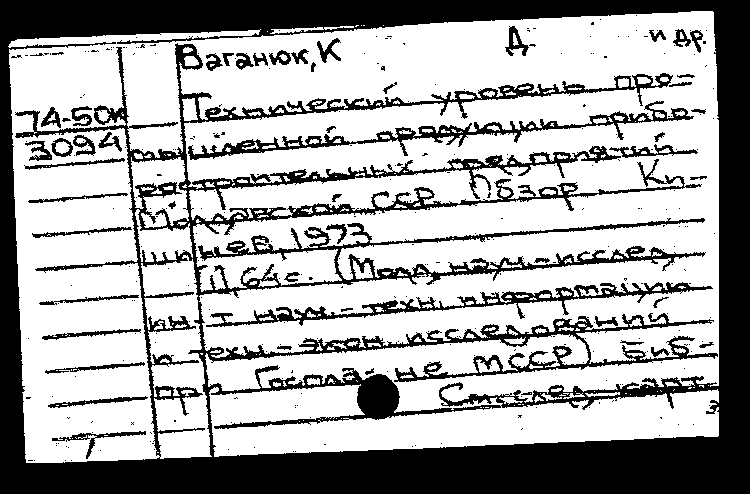 Ваганюк, К Д и др.
74-50к
3094
Технический уровень про-
мышленной продукции прибо-
ростроительных предприятий
Молдавской ССР. Обзор. Ки-
шинев, 1973
[1], 64 с. (Молд. науч.-исслед.
ин-т науч.-техн. информации
и техн.-экон. исследований
при Госплане МССР). Биб-
См. след. карт.